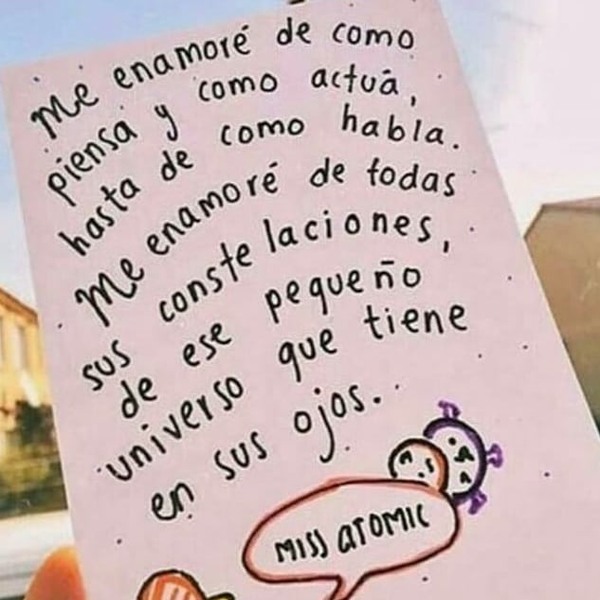 Me enamoré de como
piensa y como actuá,
hasta de como habla.
Me enamoré de todas
sus constelaciones,
de ese pequeño
universo que tiene
en sus ojos.
MISS ATOMIC